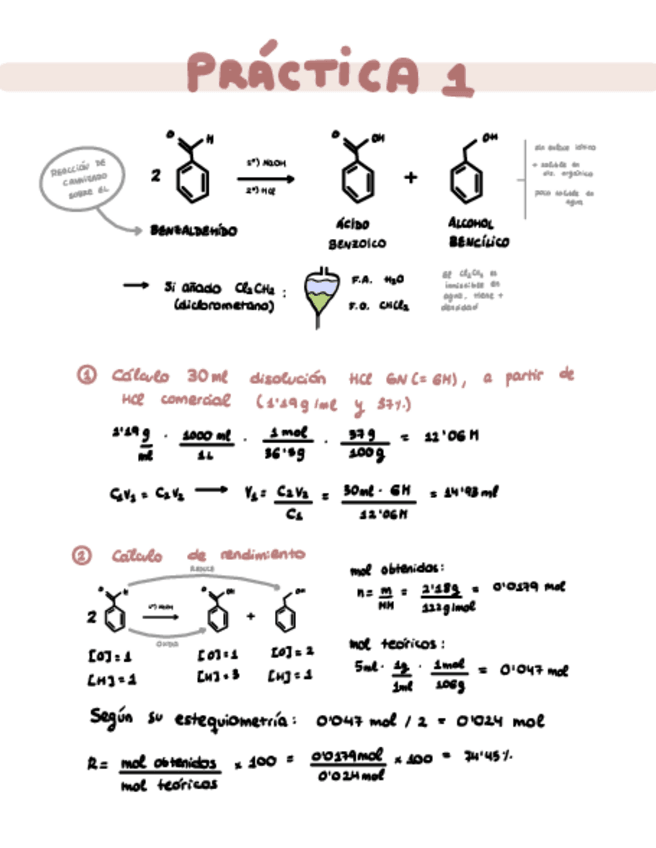 PRÁCTICA 1
REACCIÓN DE
CANNIZARO
SOBRE EL
2
O H
1º) NaOH
2º) HCl
O OH
+
OH
BENZALDEHÍDO
ÁCIDO
BENZOICO
ALCOHOL
BENCÍLICO
sin enlace iónico
+ soluble en
dis. orgánico
poco soluble en
agua
→ Si añado Cl₂CH₂ :
(diclorometano)
F.A. H₂O
F.O. CHCl₂
el Cl₂CH₂ es
inmiscible en
agua, tiene +
densidad
① Cálculo 30 ml disolución HCl 6N (= 6M), a partir de
HCl comercial (1'19 g/ml y 37%)
1'19 g/ml · 1000 ml/1L · 1 mol/36'5g · 37g/100g = 12'06 M
C₁V₁ = C₂V₂ → V₁ = C₂V₂/C₁ = 30ml · 6M/12'06M = 14'93 ml
② Cálculo de rendimiento
REDUCE
2
O H
1º) NaOH
O OH
+
OH
OXIDA
[O] = 1
[H] = 1
[O] = 1
[H] = 3
[O] = 2
[H] = 1
mol obtenidos:
n = m/MM = 2'18g/122g/mol = 0'0179 mol
mol teóricos:
5ml · 1g/1ml · 1mol/106g = 0'047 mol
Según su estequiometría: 0'047 mol / 2 = 0'024 mol
R = mol obtenidos/mol teóricos × 100 = 0'0179mol/0'024mol × 100 = 74'45%